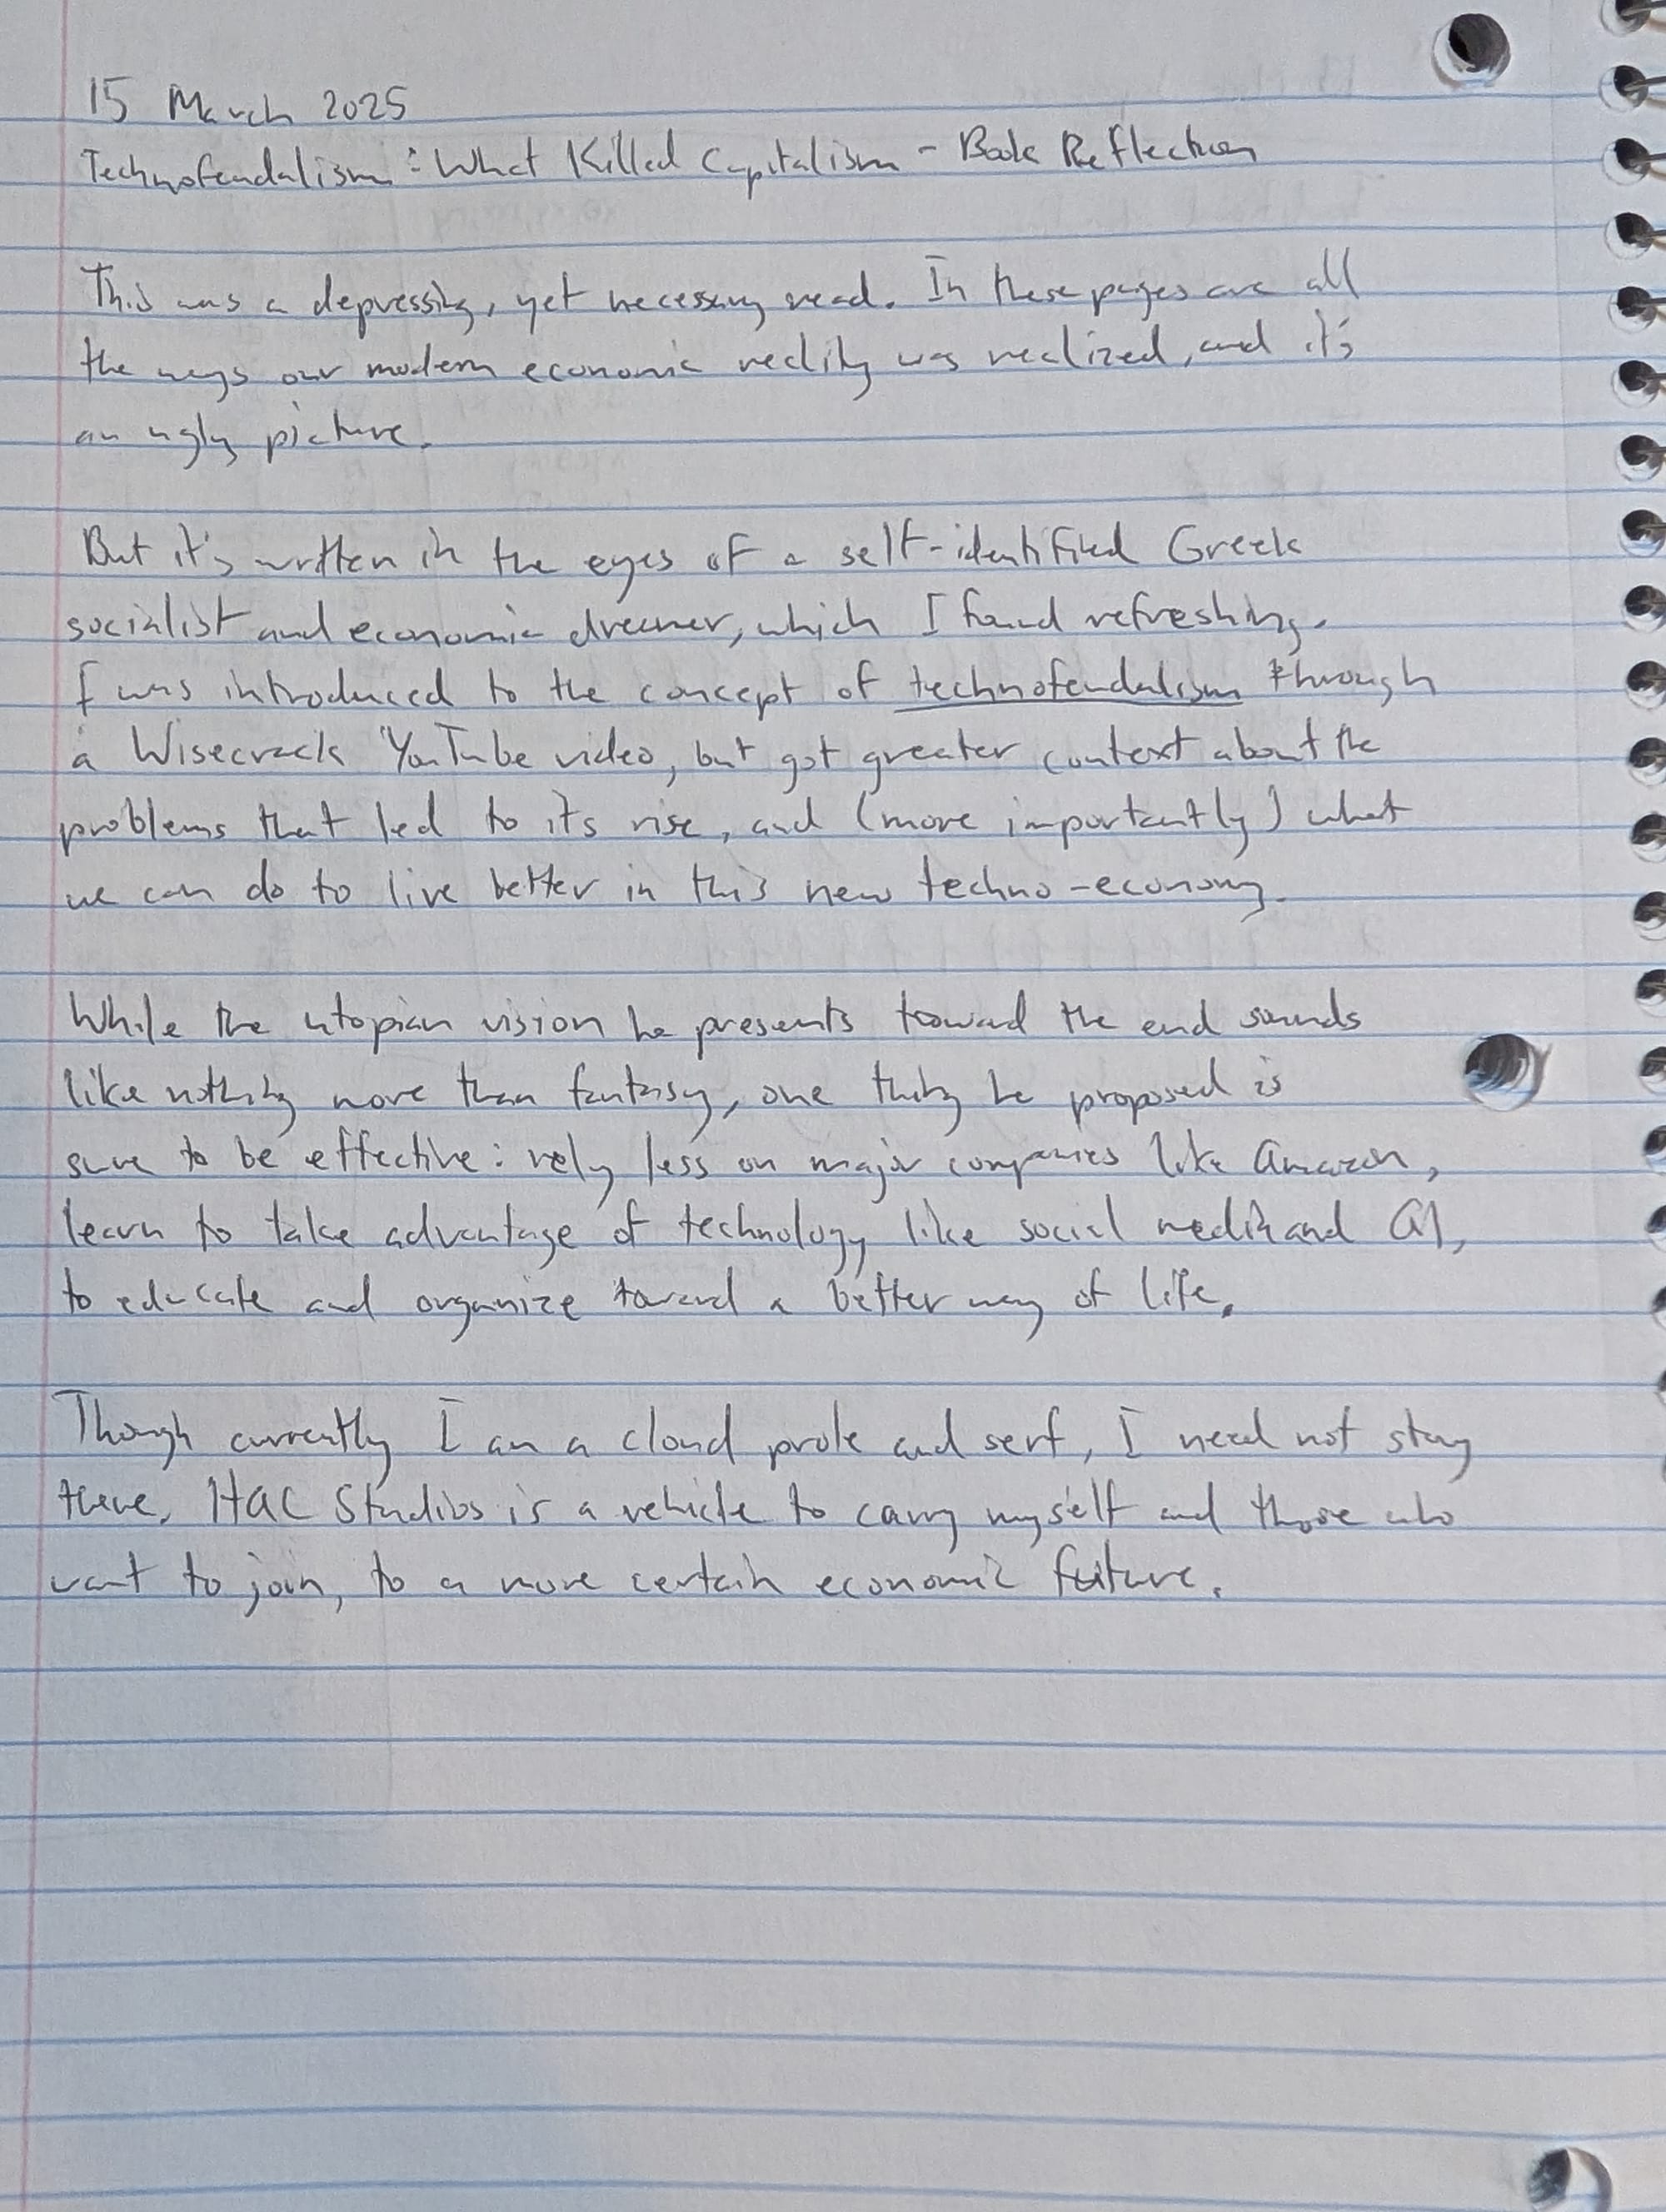 15 March 2025
Technofeudalism: What Killed Capitalism - Book Reflection
This was a depressing, yet necessary read. In these pages are all
the ways our modern economic reality was realized, and it's
an ugly picture.
But it's written in the eyes of a self-identified Greek
socialist and economic dreamer, which I found refreshing.
I was introduced to the concept of technofeudalism through
a Wisecrack YouTube video, but got greater context about the
problems that led to its rise, and (more importantly) what
we can do to live better in this new techno-economy.
While the utopian vision he presents toward the end sounds
like nothing more than fantasy, one thing he proposed is
sure to be effective: rely less on major companies like Amazon,
learn to take advantage of technology like social media and AI,
to educate and organize toward a better way of life.
Though currently I am a cloud prole and serf, I need not stay
there. HAC Studios is a vehicle to carry myself and those who
want to join, to a more certain economic future.